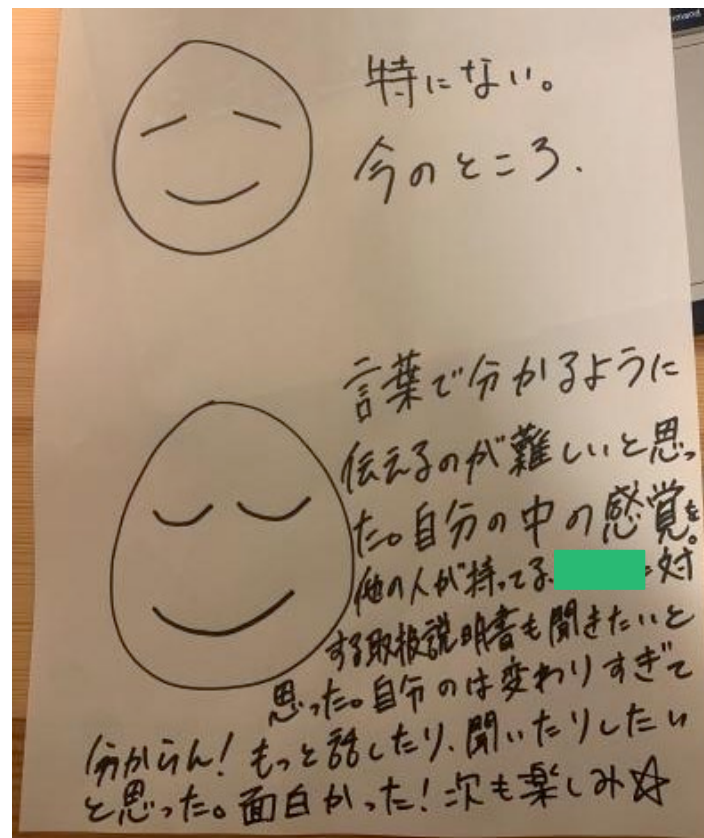 特にない。
今のところ.
言葉で分かるように
伝えるのが難しいと思っ
た。自分の中の感覚を。
他の人が持ってる に対
する取扱説明書も聞きたいと
思った。自分のは変わりすぎて
分からん！もっと話したり、聞いたりしたい
と思った。面白かった！次も楽しみ☆